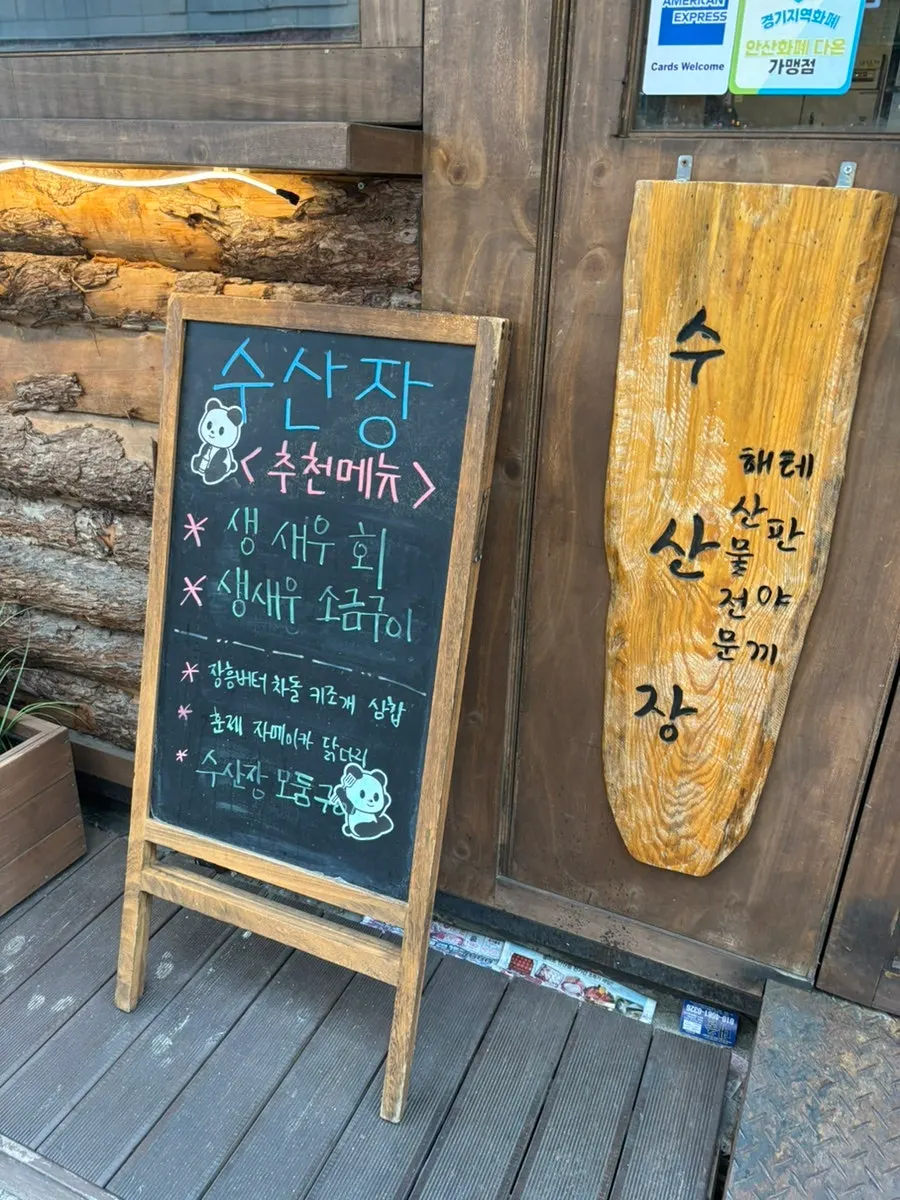 수산장
<추천메뉴>
* 생 새우 회
* 생새우 소금구이
* 장흥버터 차돌 키조개 삼합
* 훈제 자메이카 닭다리
* 수산장 모둠구
AMERICAN
EXPRESS
Cards Welcome
경기지역화폐
안산화폐 다온
가맹점
수산장
해산물전문
테판야끼